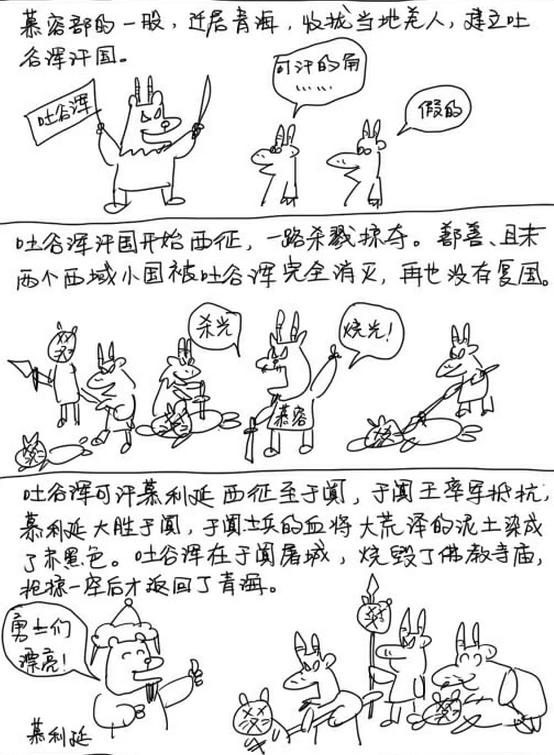 慕容部的一股，迁居青海，收拢当地羌人，建立吐
谷浑汗国。
吐谷浑
可汗的角
……
假的
吐谷浑汗国开始西征，一路杀戮掠夺。鄯善、且末
两个西域小国被吐谷浑完全消灭，再也没有复国。
杀光
烧光！
慕容
吐谷浑可汗慕利延西征至于阗，于阗王率军抵抗，
慕利延大胜于阗，于阗士兵的血将大荒泽的泥土染成
了赤黑色。吐谷浑在于阗屠城，烧毁了佛教寺庙，
抢掠一空后才返回了青海。
勇士们
漂亮！
慕利延